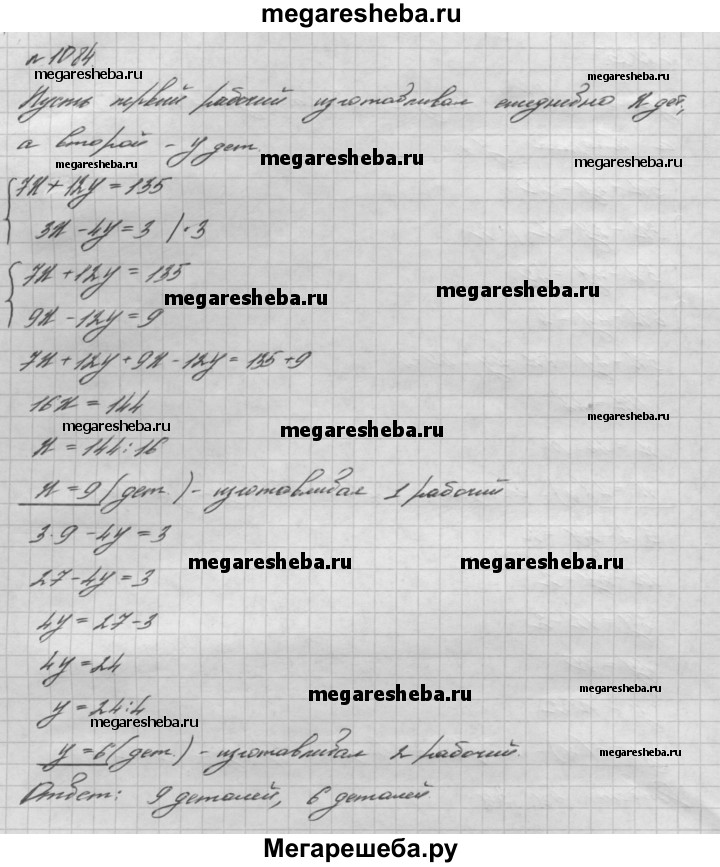 megaresheba.ru
№ 1084
megaresheba.ru megaresheba.ru
Пусть первый рабочий изготавливал ежедневно x дет,
а второй - y дет.
megaresheba.ru megaresheba.ru megaresheba.ru
7x + 12y = 135
3x - 4y = 3 | · 3
7x + 12y = 135
megaresheba.ru megaresheba.ru
9x - 12y = 9
7x + 12y + 9x - 12y = 135 + 9
16x = 144
megaresheba.ru megaresheba.ru megaresheba.ru
x = 144 : 16
x = 9 (дет.) - изготавливал 1 рабочий
3 · 9 - 4y = 3
megaresheba.ru megaresheba.ru
27 - 4y = 3
4y = 27 - 3
4y = 24
megaresheba.ru megaresheba.ru
y = 24 : 4
megaresheba.ru megaresheba.ru
y = 6 (дет.) - изготавливал 2 рабочий.
Ответ: 9 деталей, 6 деталей
Мегарешеба.ру